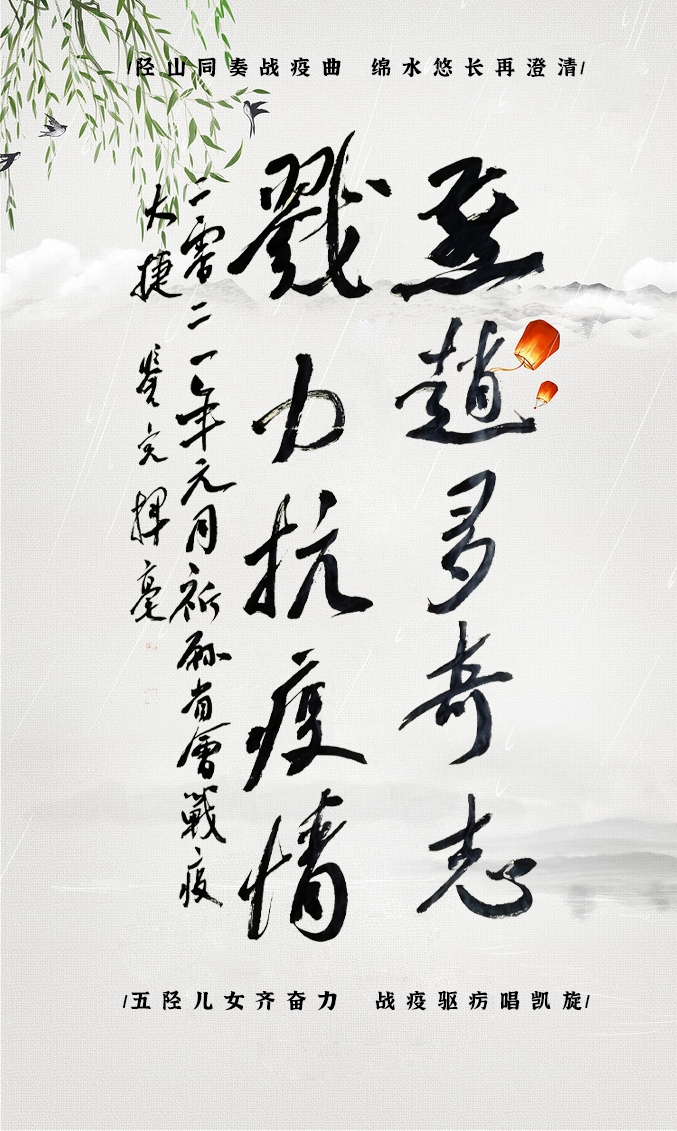 /陉山同奏战疫曲 绵水悠长再澄清/
燕趙多奇志
戮力抗疫情
二零二一年元月祈祝省會戰疫
大捷 登完揮毫
/五陉儿女齐奋力 战疫驱疠唱凯旋/